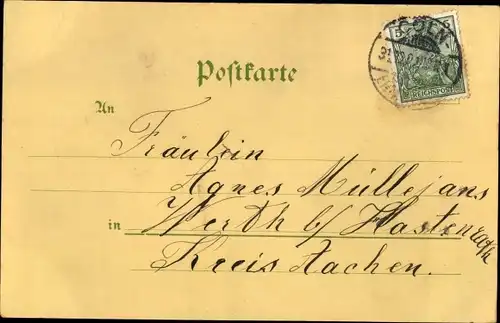 CÖLN
5
REICHSPOST
Postkarte
An
Fräulein
Agnes Müllejans
in Werth b/ Hastenrath
Kreis Aachen.